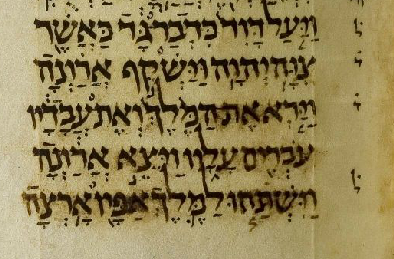 וַיַּעַל דָּוִד כִּדְבַר גָּד כַּאֲשֶׁר
צִוָּה יְהוָה וַיַּשְׁקֵף אֲרַוְנָה
וַיַּרְא אֶת הַמֶּלֶךְ וְאֶת עֲבָדָיו
עֹבְרִים עָלָיו וַיֵּצֵא אֲרַוְנָה
וַיִּשְׁתַּחוּ לַמֶּלֶךְ אַפָּיו אָרְצָה